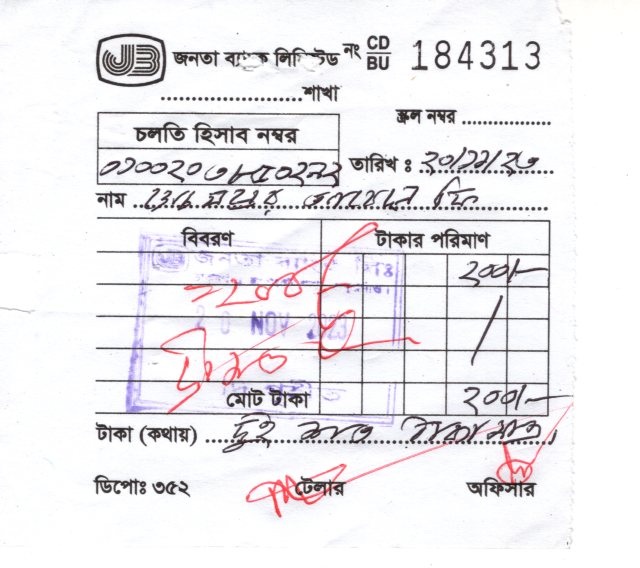 JB জনতা ব্যাংক লিমিটেড নং CD BU 184313
....................শাখা
স্ক্রল নম্বর ................
চলতি হিসাব নম্বর
তারিখ : ২০/১১/২৩
নাম
বিবরণ টাকার পরিমাণ
২০০/-
=২০০/-
NOV 2023
মোট টাকা ২০০/-
টাকা (কথায়) .....দুই শত টাকা মাত্র
ডিপোঃ ৩৫২ টেলার অফিসার